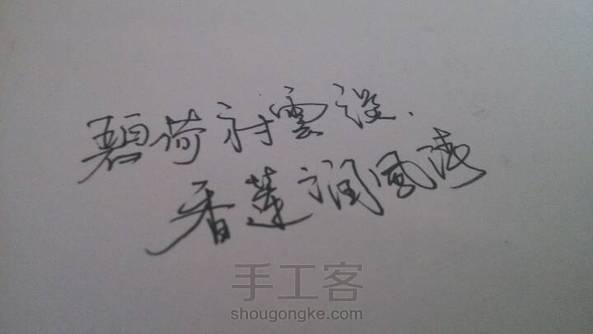 碧荷衬雲
香蓮润風
手工客
shougongke.com